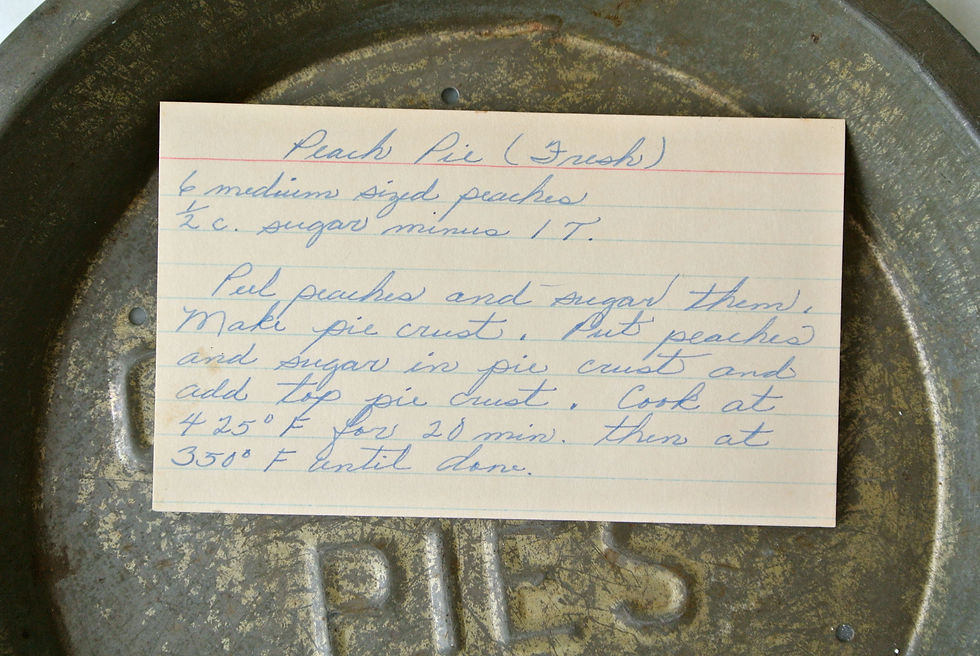 Peach Pie (Fresh)
6 medium sized peaches
½ c. sugar minus 1 T.
Peel peaches and sugar them.
Make pie crust. Put peaches
and sugar in pie crust and
add top pie crust. Cook at
425° F for 20 min. then at
350° F until done.
PIES